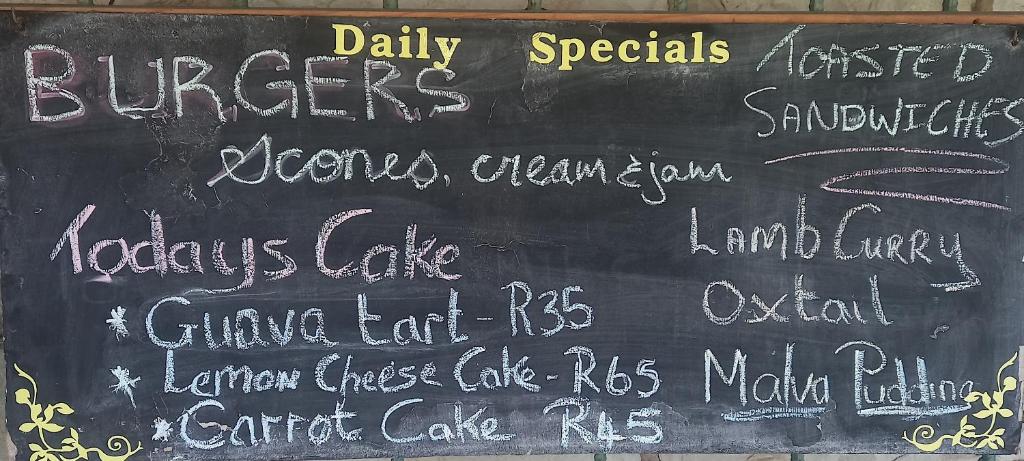 Daily Specials
BURGERS
TOASTED
SANDWICHES
Scones, cream & jam
Todays Cake
* Guava tart - R35
* Lemon Cheese Cake - R65
* Carrot Cake R45
Lamb Curry
Oxtail
Malva Pudding